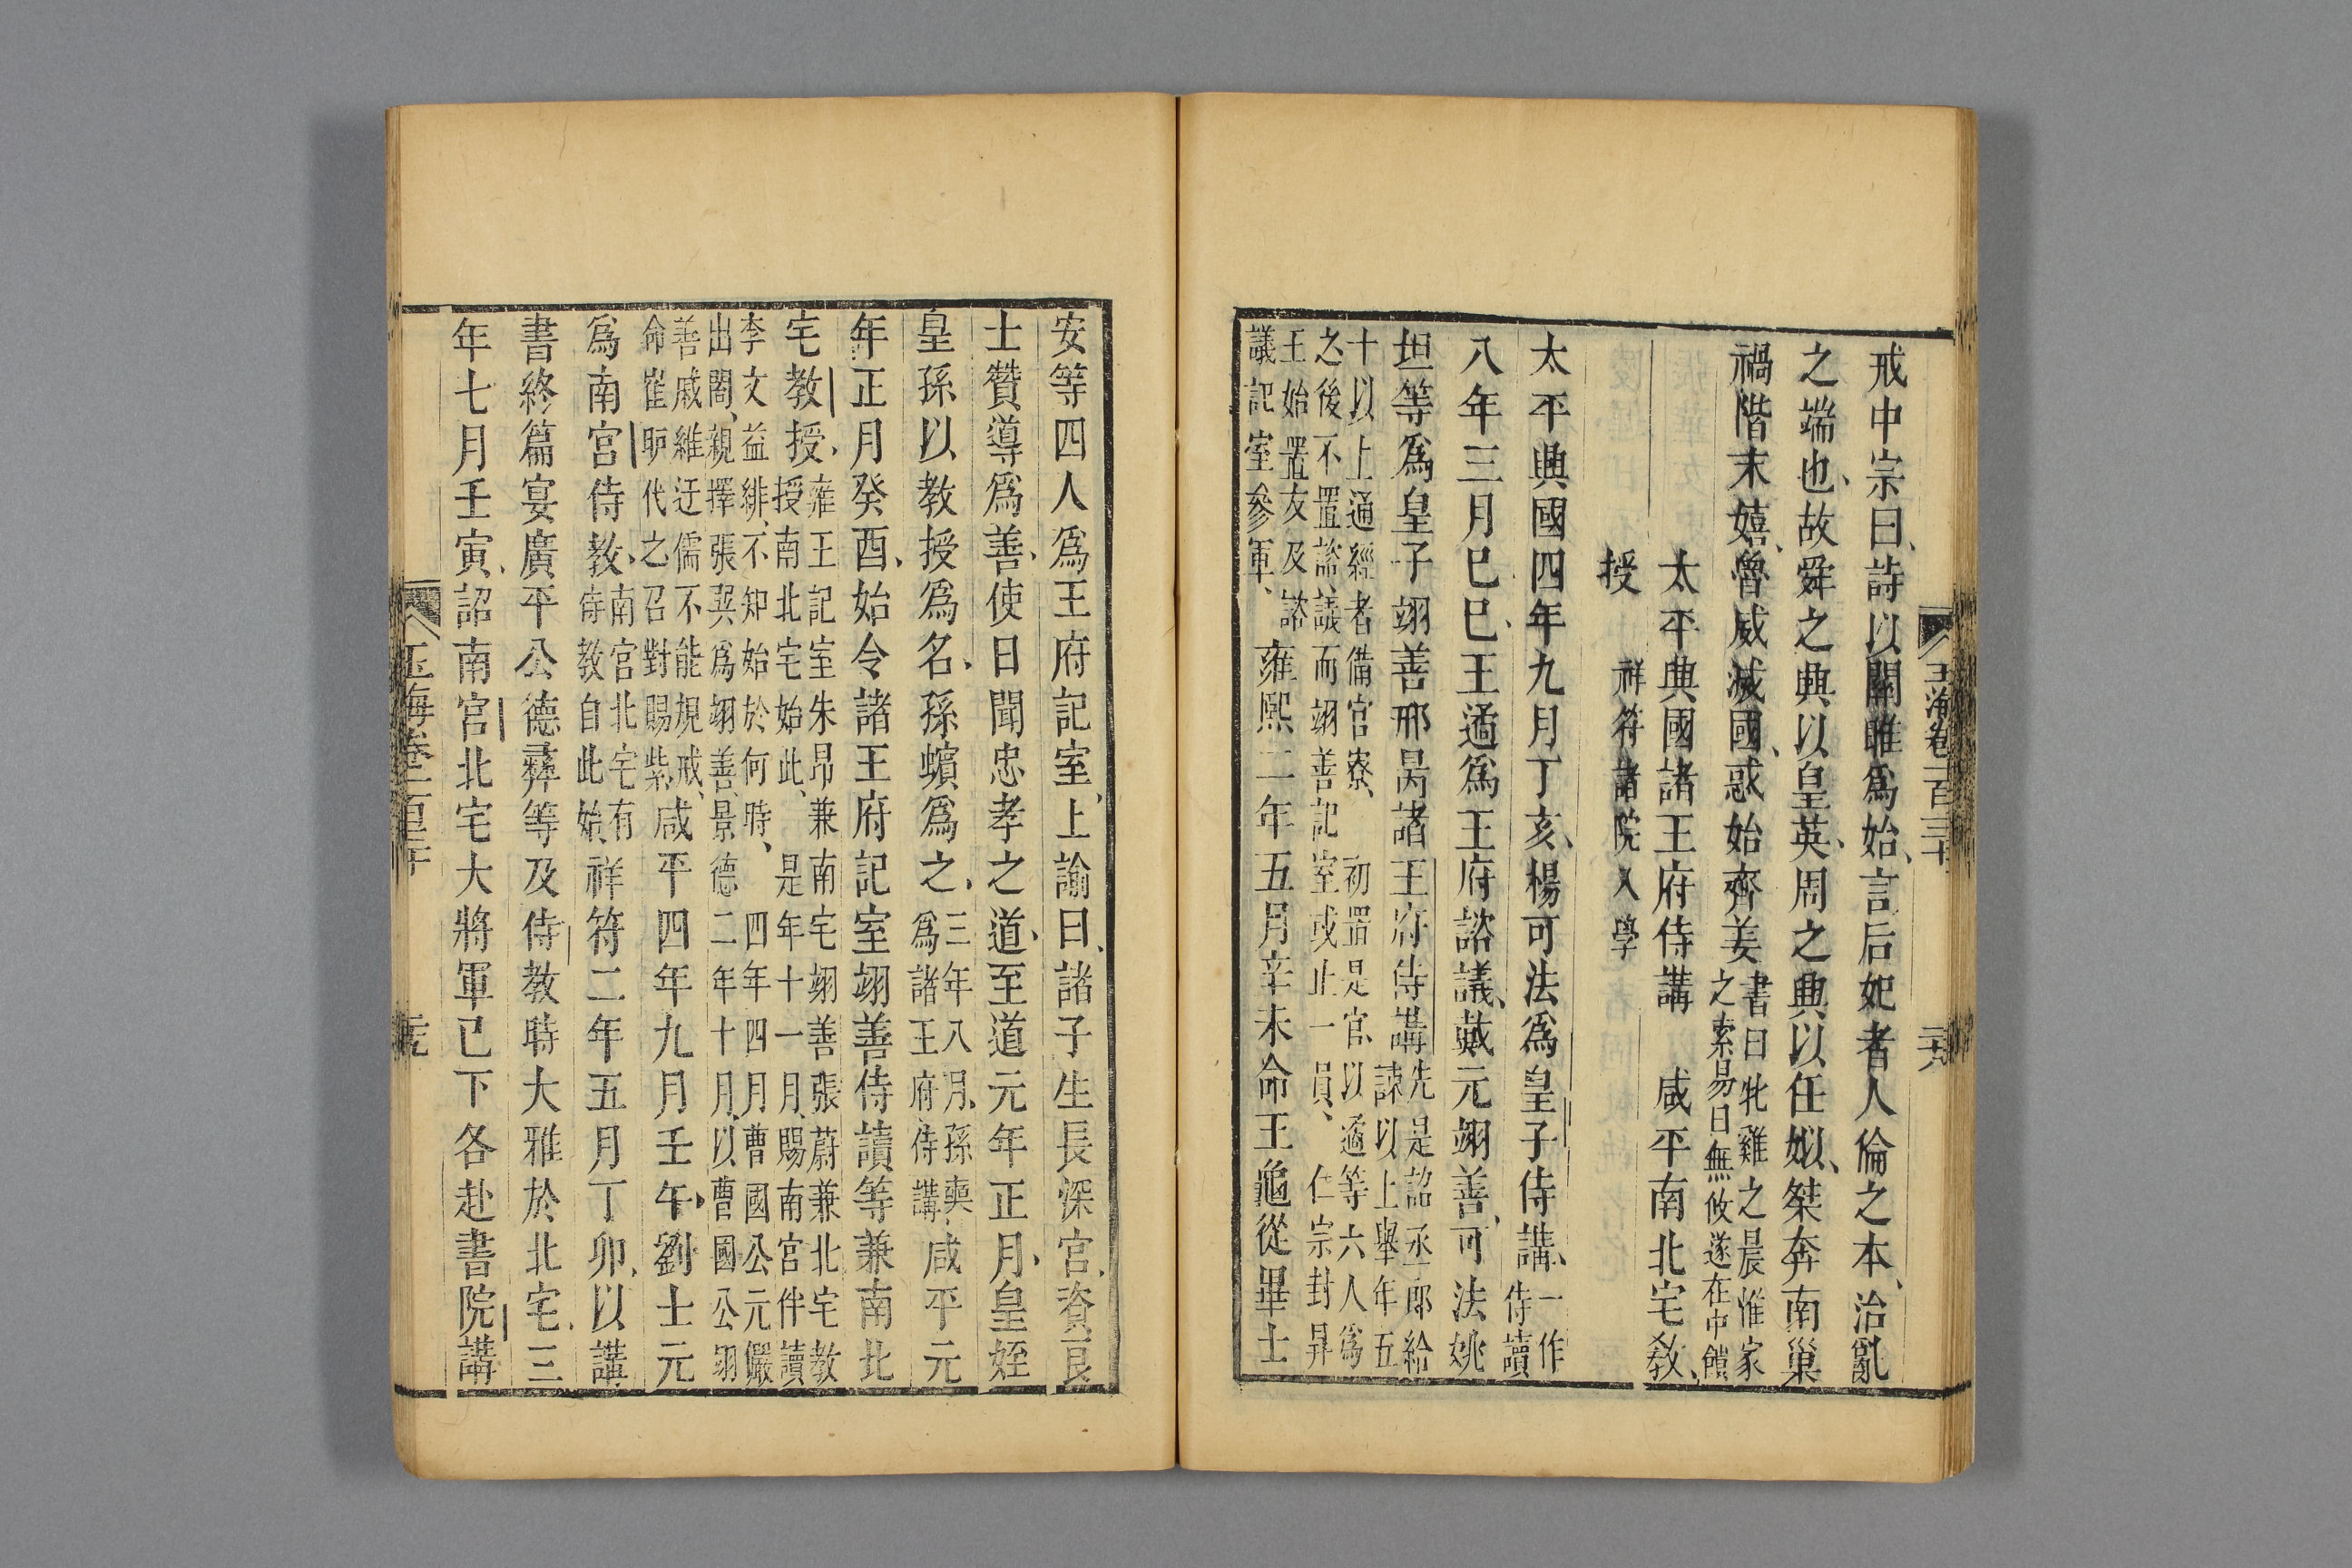 戒中宗曰詩以關雎爲始言后妃者人倫之本治亂
之端也故舜之典以皇英周之典以任姒桀奔南巢
禍階末嬉魯威滅國惑始齊姜
書曰牝雞之晨惟家
之索易曰無攸遂在中饋
太平興國諸王府侍講 咸平南北宅教
授 祥符諸院入學
太平興國四年九月丁亥楊可法爲皇子侍講
一作
侍讀
八年三月己巳王遹爲王府諮議戴元翊善可法姚
坦等爲皇子翊善邢昺諸王府侍講
先是詔丞郎給
諫以上舉年五
十以上通經者備官寮 初置是官以遹等六人爲
之後不置諮議而翊善記室或止一員 仁宗封昇
王始置友及諮
議記室參軍
雍熙二年五月辛未命王龜從畢士
玉海卷一百三十
安等四人爲王府記室上諭曰諸子生長深宮資良
士贊導爲善使日聞忠孝之道至道元年正月皇姪
皇孫以教授爲名孫蠙爲之
三年八月孫奭
爲諸王府侍講
咸平元
年正月癸酉始令諸王府記室翊善侍讀等兼南北
宅教授
雍王記室朱昂兼南宅翊善張蔚兼北宅教
授南北宅始此 是年十一月賜南宮伴讀
李文益緋不知始於何時 四年四月曹國公元儼
出閤親擇張巽爲翊善景德二年十月以曹國公翊
善戚維迂儒不能規戒
命崔昈代之召對賜紫
咸平四年九月壬午劉士元
爲南宮侍教
南宮北宅有
侍教自此始
祥符二年五月丁卯以講
書終篇宴廣平公德彝等及侍教時大雅於北宅三
年七月壬寅詔南宮北宅大將軍已下各赴書院講
玉海卷一百三十